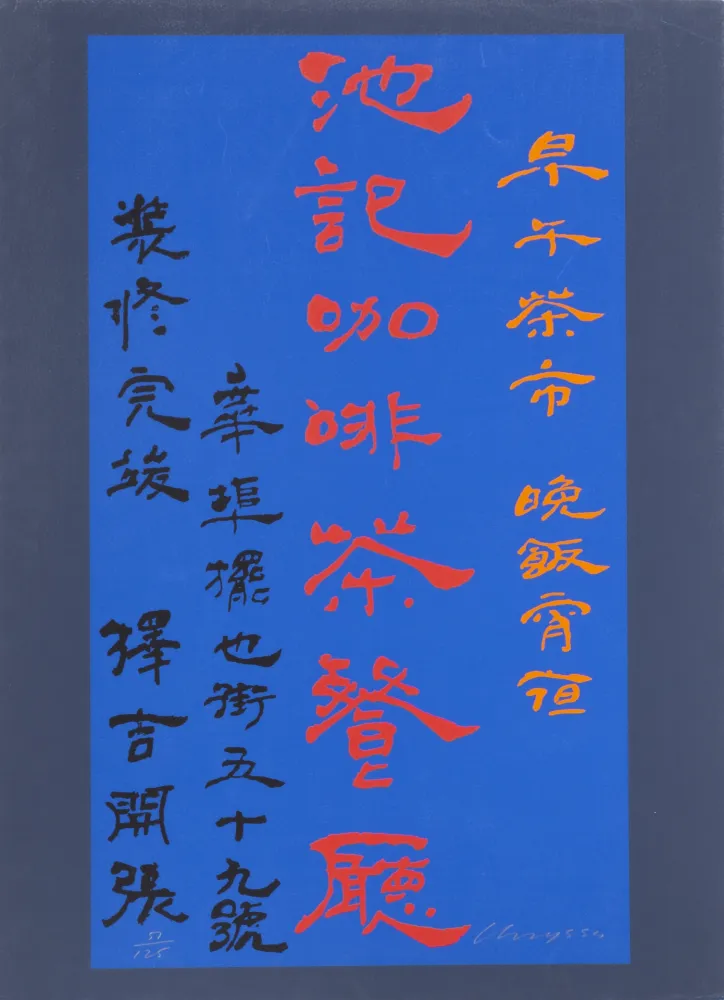 早午茶市 晚飯宵夜
池記咖啡茶餐廳
華埠擺也街五十九號
裝修完竣 擇吉開張
57/125
Chryssa